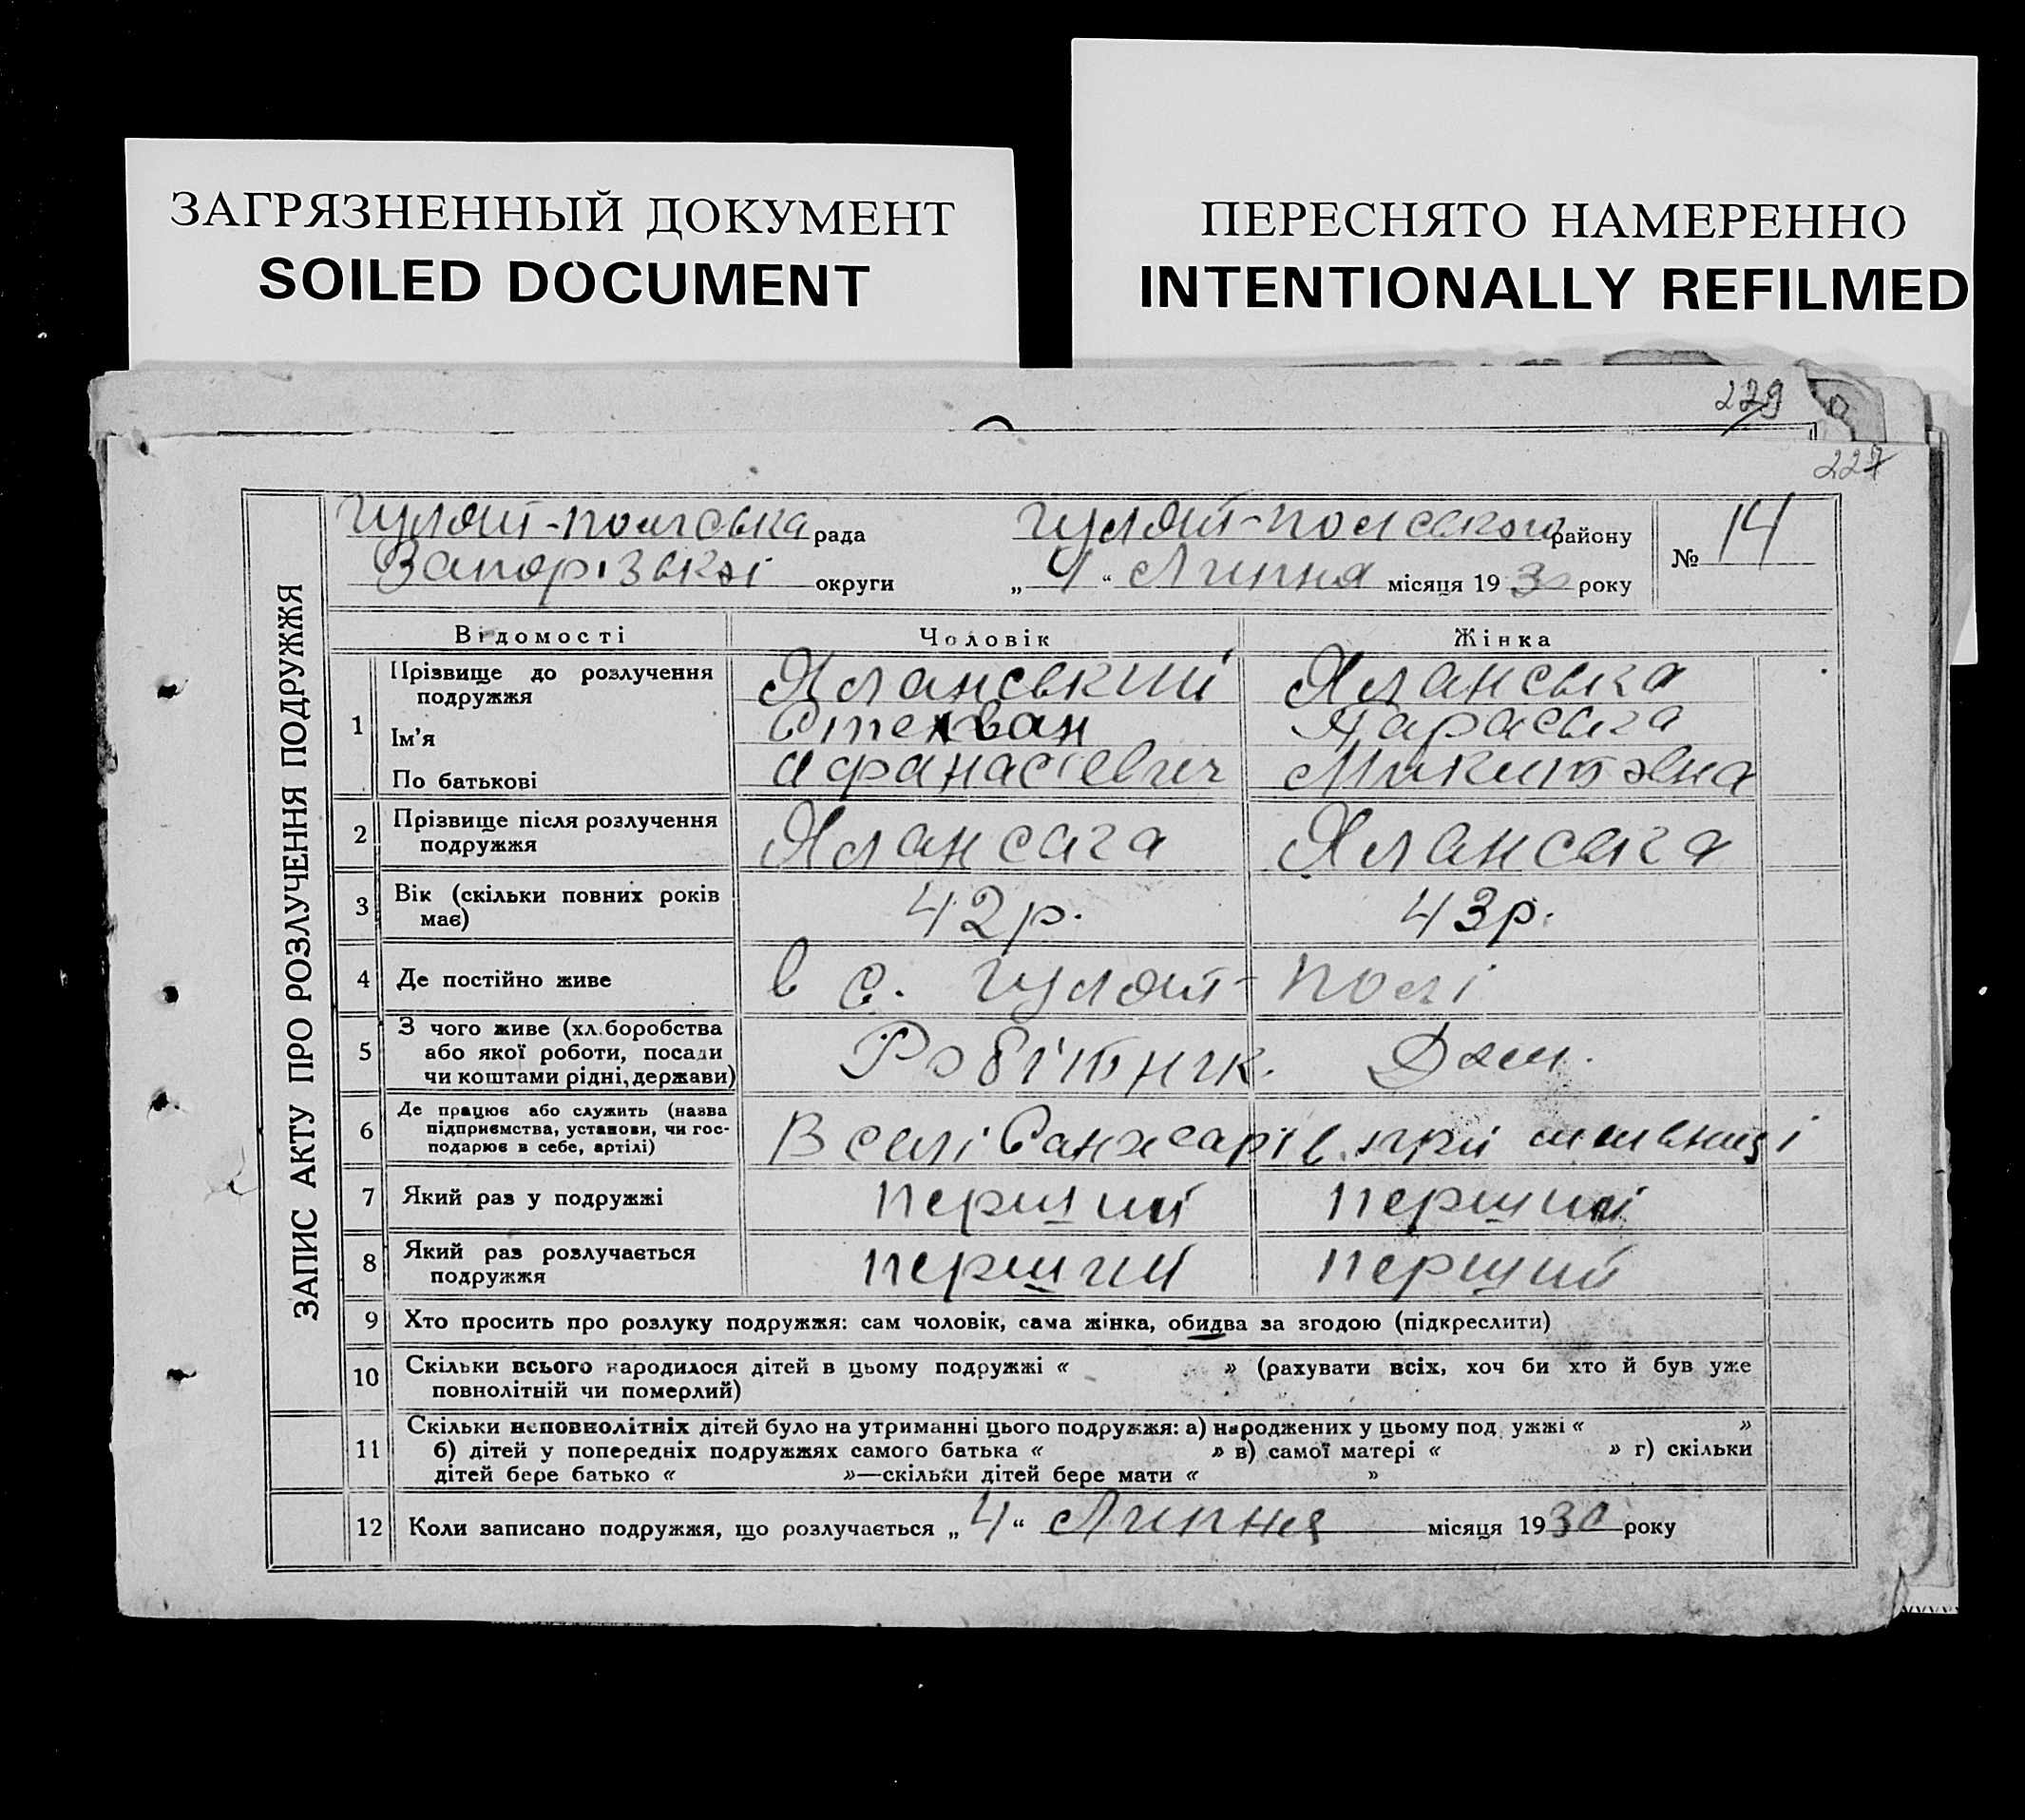 ЗАГРЯЗНЕННЫЙ ДОКУМЕНТ
SOILED DOCUMENT
ПЕРЕСНЯТО НАМЕРЕННО
INTENTIONALLY REFILMED
229
227
ЗАПИС АКТУ ПРО РОЗЛУЧЕННЯ ПОДРУЖЖЯ
Гуляй-польська рада Гуляй-польського району № 14
Запорізької округи „4“ Липня місяця 1930 року
Відомості Чоловік Жінка
1 Прізвище до розлучення подружжя Яланський Яланська
Ім'я Степван Параська
По батькові Афанасієвич Микитовна
2 Прізвище після розлучення подружжя Яланська Яланська
3 Вік (скільки повних років має) 42 р. 43 р.
4 Де постійно живе в с. Гуляй-Полі
5 З чого живе (хл.боробства або якої роботи, посади чи коштами рідні, держави) Робітник. Дом.
6 Де працює або служить (назва підприємства, установи, чи господарює в себе, артілі) В селі при
7 Який раз у подружжі перший перший
8 Який раз розлучається подружжя перший перший
9 Хто просить про розлуку подружжя: сам чоловік, сама жінка, обидва за згодою (підкреслити)
10 Скільки всього народилося дітей в цьому подружжі « » (рахувати всіх, хоч би хто й був уже
повнолітній чи померлий)
11 Скільки неповнолітніх дітей було на утриманні цього подружжя: а) народжених у цьому под ужжі « »
б) дітей у попередніх подружжях самого батька « » в) самої матері « » г) скільки
дітей бере батько « »—скільки дітей бере мати « »
12 Коли записано подружжя, що розлучається „4“ Липня місяця 1930 року